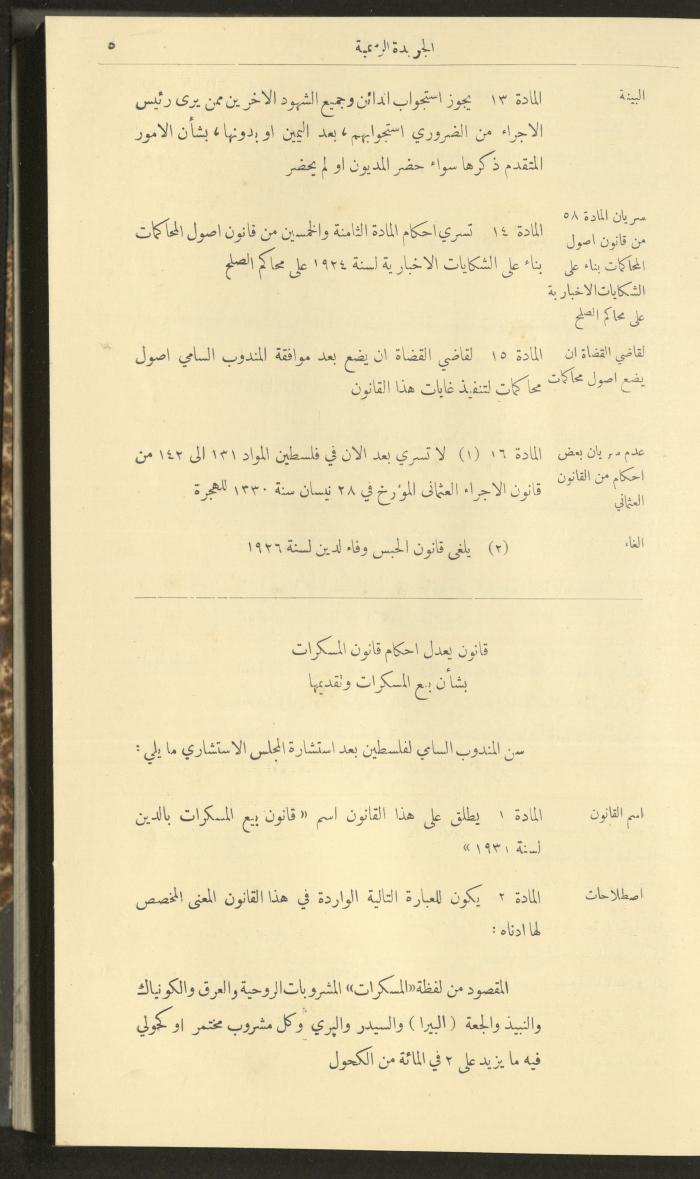 الجريدة الرسمية ٥
البينة
المادة ١٣ يجوز استجواب الدائن وجميع الشهود الاخرين ممن يرى رئيس
الاجراء من الضروري استجوابهم، بعد اليمين او بدونها، بشأن الامور
المتقدم ذكرها سواء حضر المديون او لم يحضر
سريان المادة ٥٨
من قانون اصول
المحاكمات بناء على
الشكايات الاخبارية
على محاكم الصلح
المادة ١٤ تسري احكام المادة الثامنة والخمسين من قانون اصول المحاكمات
بناء على الشكايات الاخبارية لسنة ١٩٢٤ على محاكم الصلح
لقاضي القضاة ان
يضع اصول محاكمات
المادة ١٥ لقاضي القضاة ان يضع بعد موافقة المندوب السامي اصول
محاكمات لتنفيذ غايات هذا القانون
عدم سريان بعض
احكام من القانون
العثماني
المادة ١٦ (١) لا تسري بعد الان في فلسطين المواد ١٣١ الى ١٤٢ من
قانون الاجراء العثمانى المؤرخ في ٢٨ نيسان سنة ١٣٣٠ للهجرة
الغاء
(٢) يلغى قانون الحبس وفاء لدين لسنة ١٩٢٦
قانون يعدل احكام قانون المسكرات
بشأن بيع المسكرات وتقديمها
سن المندوب السامي لفلسطين بعد استشارة المجلس الاستشاري ما يلي :
اسم القانون
المادة ١ يطلق على هذا القانون اسم « قانون بيع المسكرات بالدين
لسنة ١٩٣١ »
اصطلاحات
المادة ٢ يكون للعبارة التالية الواردة في هذا القانون المعنى المخصص
لها ادناه :
المقصود من لفظة «المسكرات» المشروبات الروحية والعرق والكونياك
والنبيذ والجعة (البيرا) والسيدر والپري وكل مشروب مختمر او كحولي
فيه ما يزيد على ٢ في المائة من الكحول